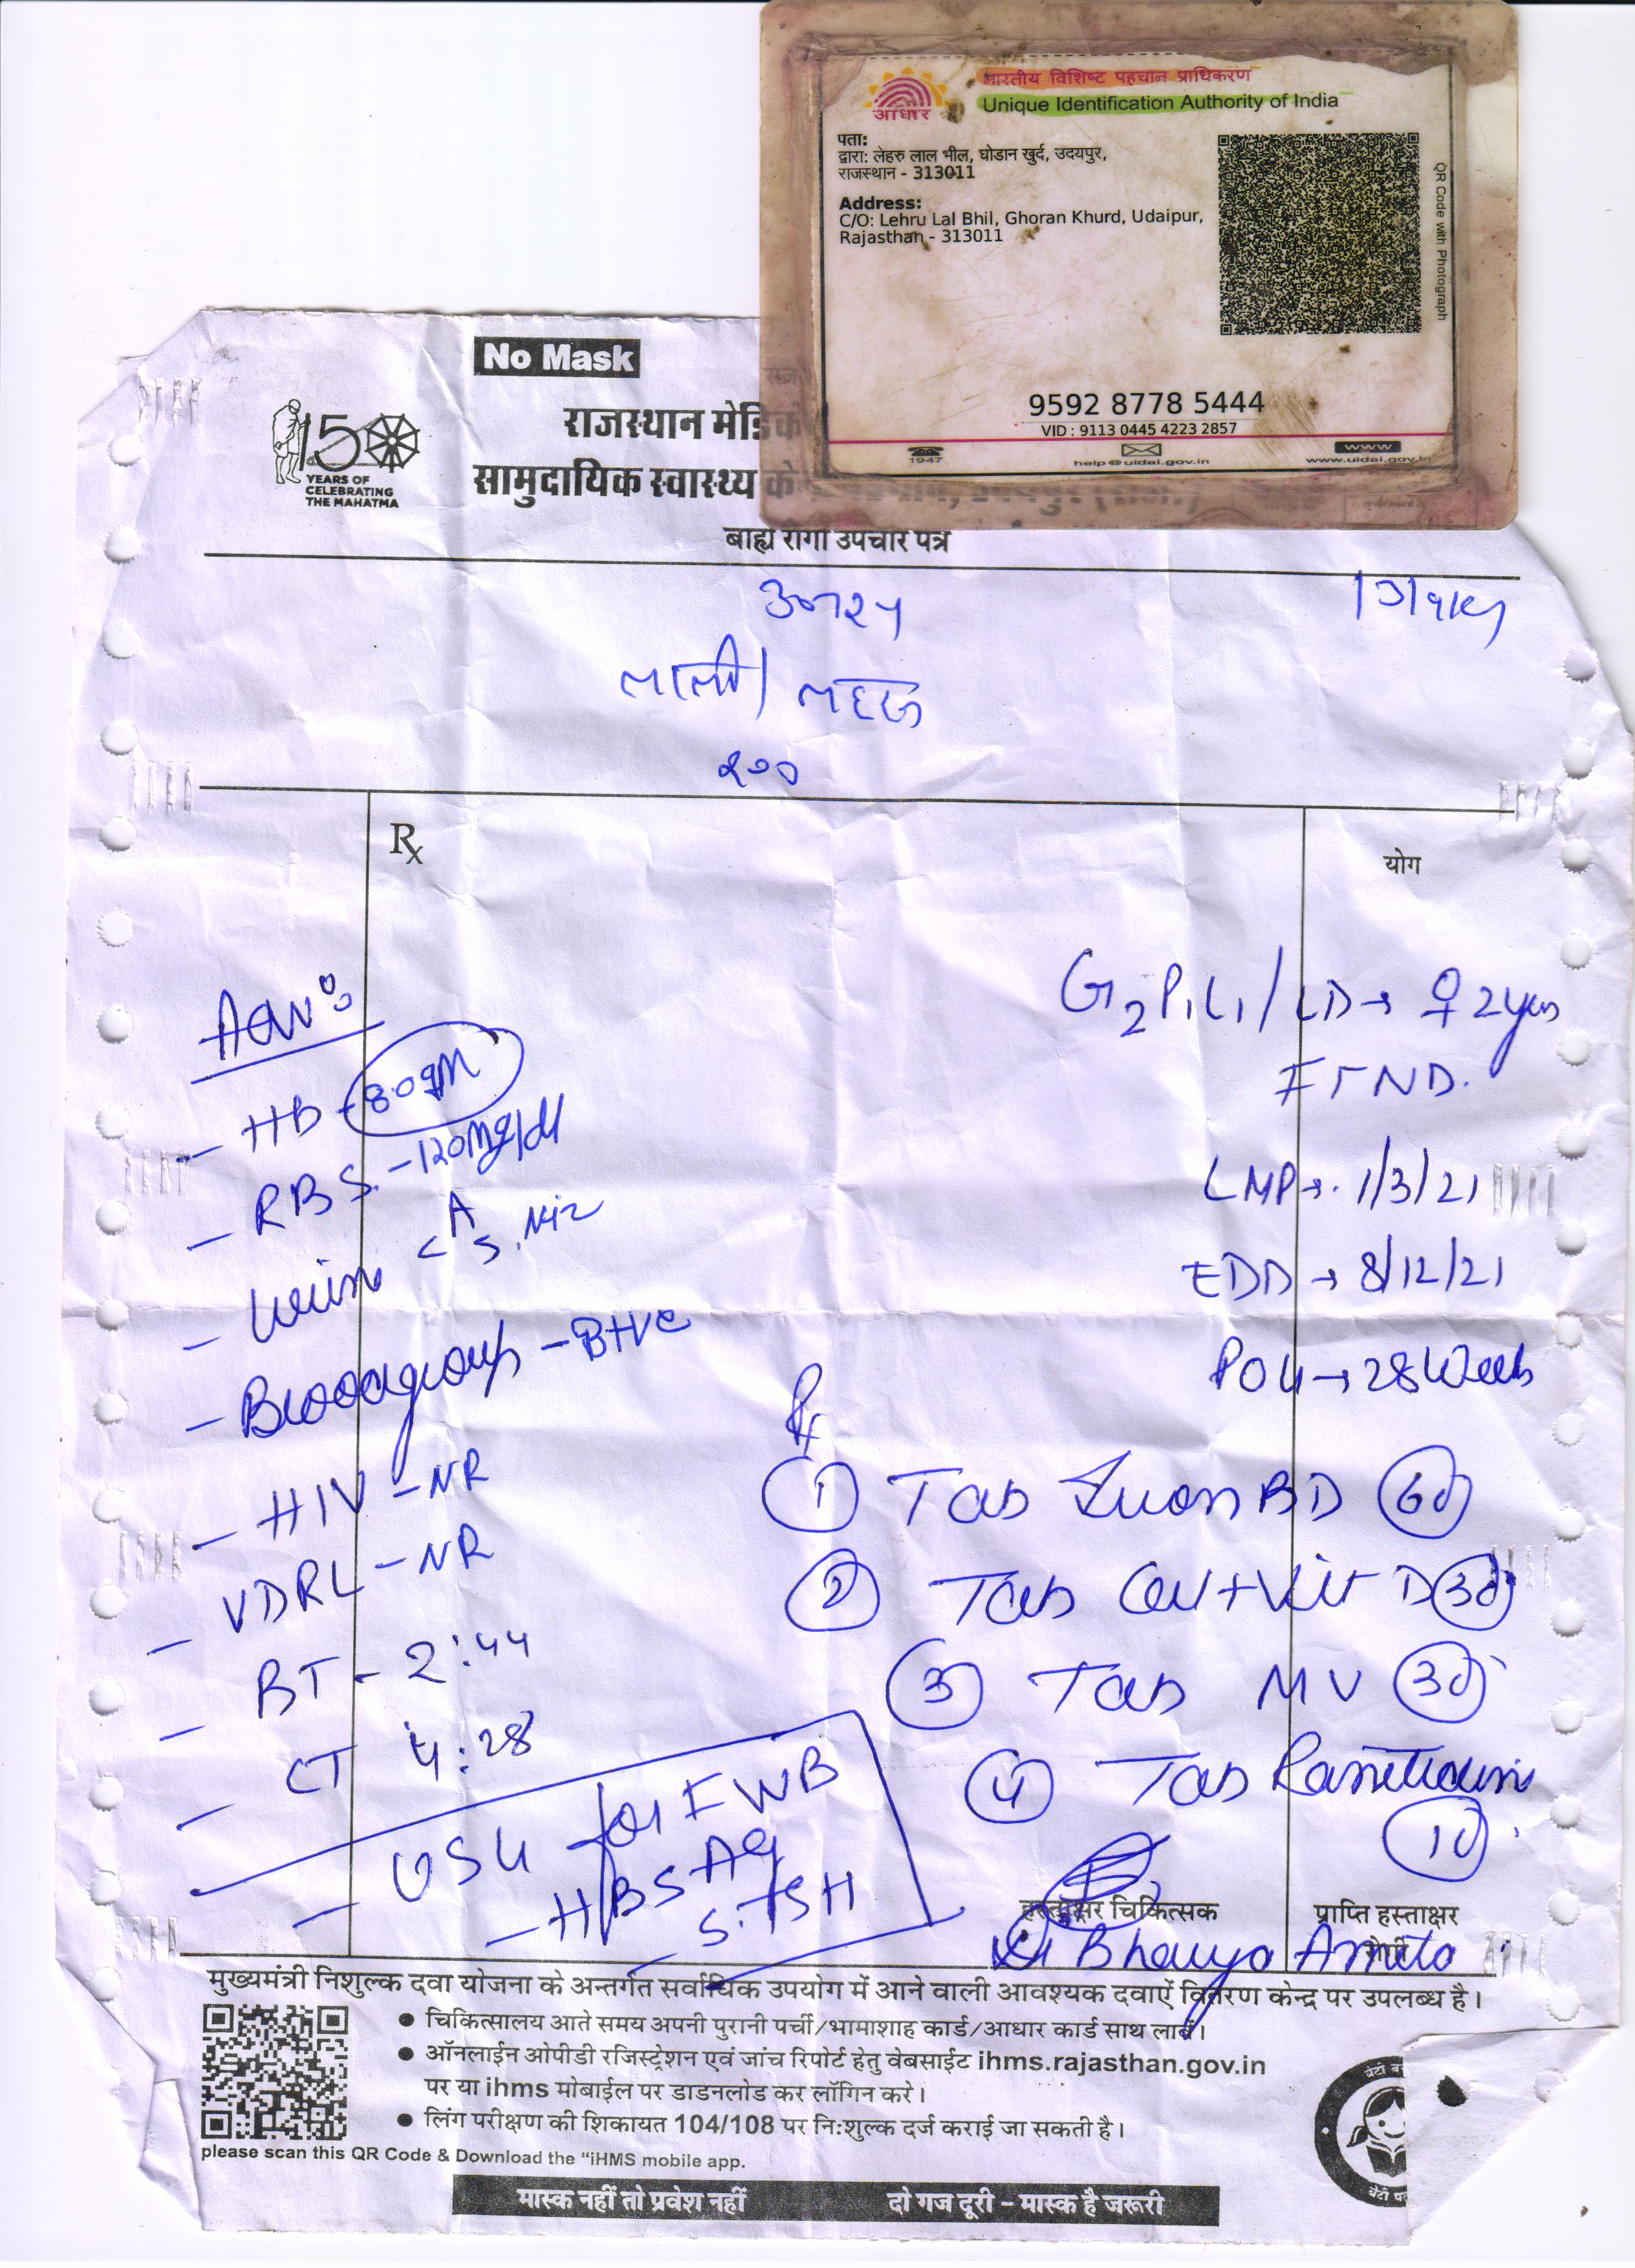 भारतीय विशिष्ट पहचान प्राधिकरण
Unique Identification Authority of India
आधार
पता:
द्वारा: लेहरु लाल भील, घोडान खुर्द, उदयपुर,
राजस्थान - 313011
Address:
C/O: Lehru Lal Bhil, Ghoran Khurd, Udaipur,
Rajasthan - 313011
QR Code with Photograph
9592 8778 5444
VID : 9113 0445 4223 2857
1947
help@uidai.gov.in
www
www.uidai.gov.in
No Mask
राजस्थान मेडिके
150
YEARS OF
CELEBRATING
THE MAHATMA
सामुदायिक स्वास्थ्य के
बाह्य रोगी उपचार पत्र
Rx
योग
G2P1L1/LD→ ♀ 2yrs
FTND.
LMP→ 1/3/21
EDD → 8/12/21
POG→28 Week
Adv:
- HB - 8.0gm
- RBS - 120mg/dl
- Urine < A S . Nil
- Blood group - B+ve
- HIV - NR
- VDRL - NR
- BT - 2:44
- CT 4:28
- USG for FWB
- HBSAg
- S.TSH
Rx
1 Tab Iron BD 60
2 Tab Cal+Vit D 30
3 Tab MV 30
4 Tab Ranitidine
10
हस्ताक्षर चिकित्सक
प्राप्ति हस्ताक्षर
मुख्यमंत्री निशुल्क दवा योजना के अन्तर्गत सर्वाधिक उपयोग में आने वाली आवश्यक दवाऐं वितरण केन्द्र पर उपलब्ध है।
● चिकित्सालय आते समय अपनी पुरानी पर्ची/भामाशाह कार्ड/आधार कार्ड साथ लावें।
● ऑनलाईन ओपीडी रजिस्ट्रेशन एवं जांच रिपोर्ट हेतु वेबसाईट ihms.rajasthan.gov.in
पर या ihms मोबाईल पर डाडनलोड कर लॉगिन करे।
● लिंग परीक्षण की शिकायत 104/108 पर नि:शुल्क दर्ज कराई जा सकती है।
please scan this QR Code & Download the "iHMS mobile app.
मास्क नहीं तो प्रवेश नहीं
दो गज दूरी – मास्क है जरूरी